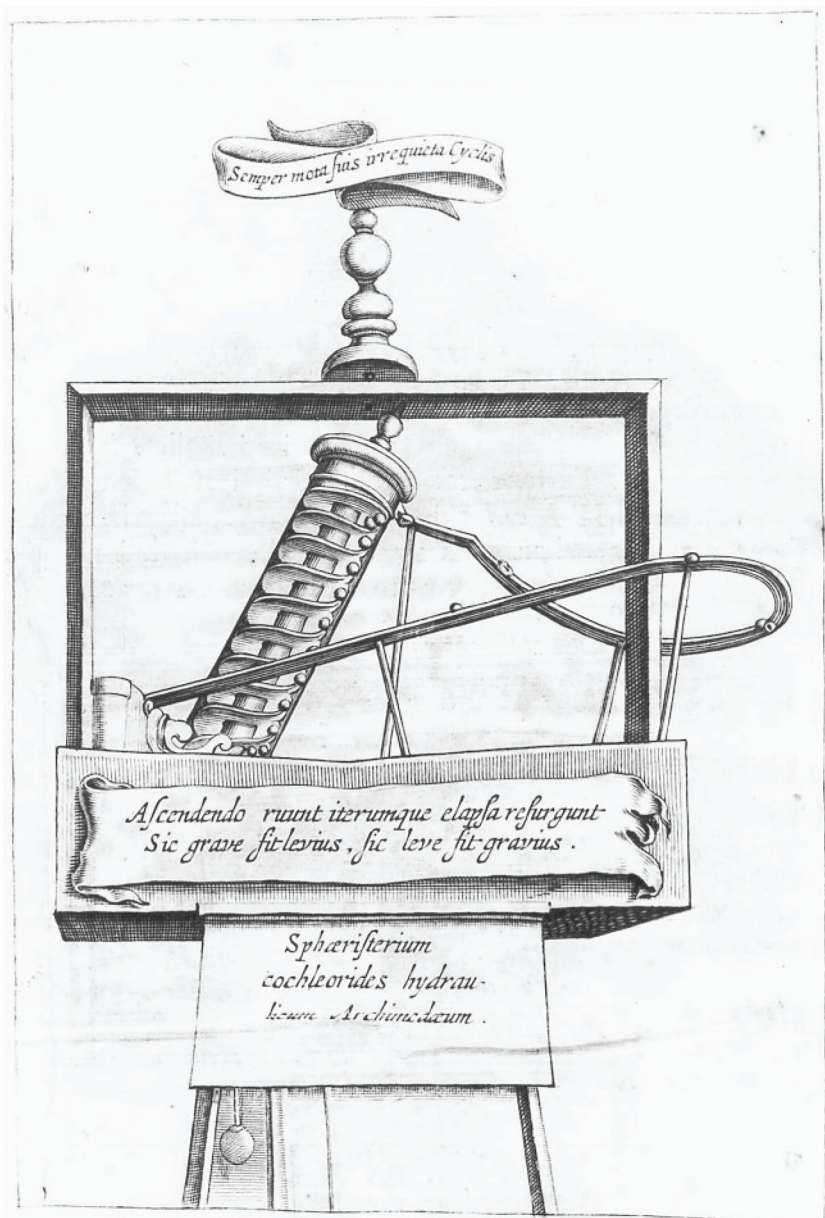 Semper mota ſuis irrequieta Cyclis
Aſcendendo ruunt iterumque elapſa reſurgunt
Sic grave fit levius, ſic leve fit gravius.
Sphæriſterium
cochleorides hydrau-
licum Archimedæum.